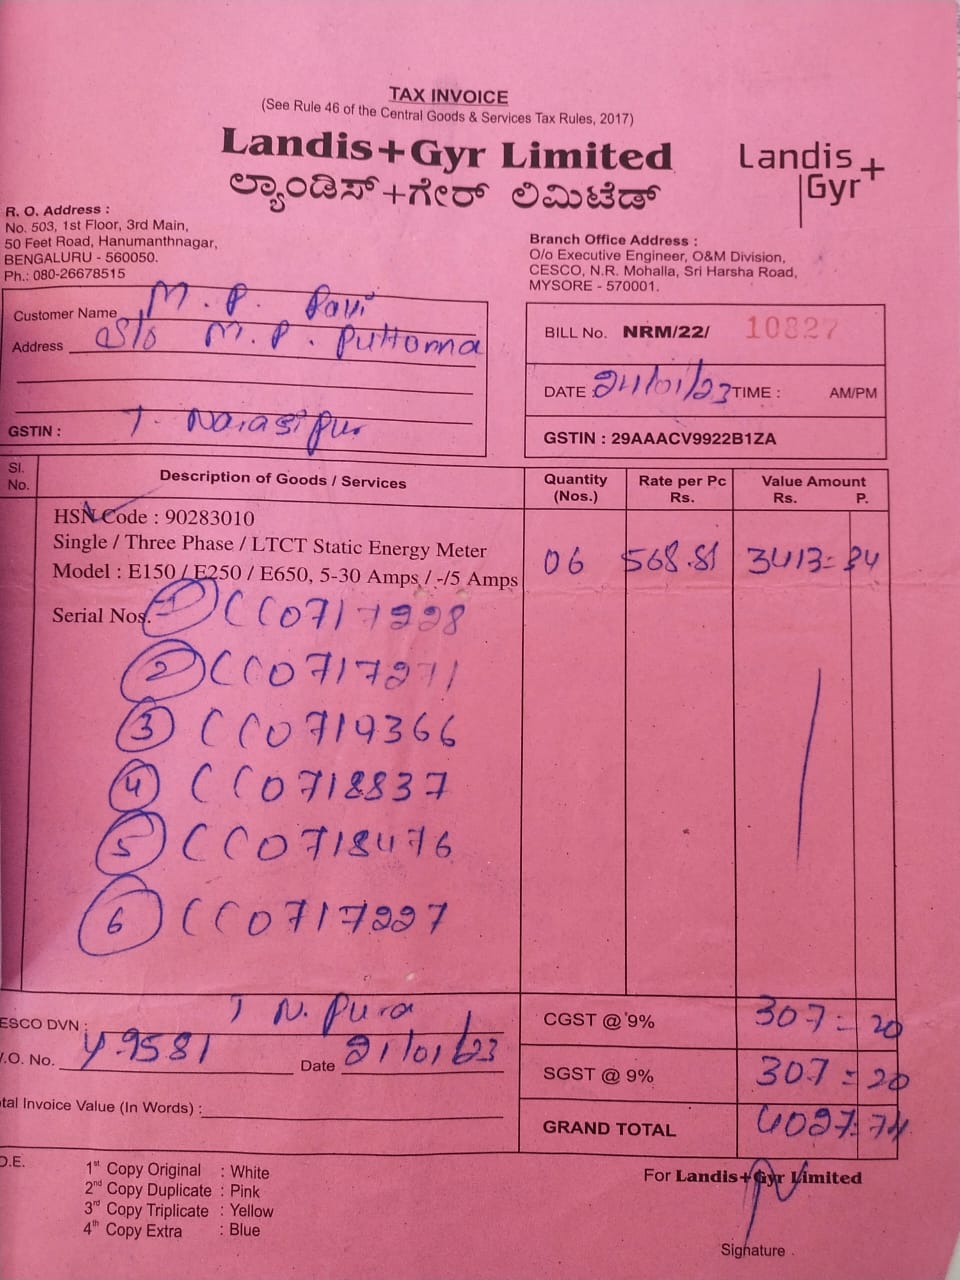 TAX INVOICE
(See Rule 46 of the Central Goods & Services Tax Rules, 2017)
Landis+Gyr Limited
ಲ್ಯಾಂಡಿಸ್+ಗೇರ್ ಲಿಮಿಟೆಡ್
Landis+
Gyr
R. O. Address :
No. 503, 1st Floor, 3rd Main,
50 Feet Road, Hanumanthnagar,
BENGALURU - 560050.
Ph.: 080-26678515
Branch Office Address :
O/o Executive Engineer, O&M Division,
CESCO, N.R. Mohalla, Sri Harsha Road,
MYSORE - 570001.
Customer Name M. P. Ravi
Address S/o M. P. Puttanna
GSTIN : T. Narasipur
BILL No. NRM/22/ 10827
DATE : 21/01/23 TIME : AM/PM
GSTIN : 29AAACV9922B1ZA
Sl. No. Description of Goods / Services Quantity (Nos.) Rate per Pc Rs. Value Amount Rs. P.
HSN Code : 90283010
Single / Three Phase / LTCT Static Energy Meter 06 568.81 3413=
Model : E150 / E250 / E650, 5-30 Amps / -/5 Amps
Serial Nos. 1 CC0717228
2 CC0717271
3 CC0719366
4 CC0718837
5 CC0718476
6 CC0717227
ESCO DVN : T N. Pura
.O. No. Y-9581 Date 21/01/23
tal Invoice Value (In Words) :
CGST @ 9% 307=20
SGST @ 9% 307=20
GRAND TOTAL 4027=74
O.E.
1st Copy Original : White
2nd Copy Duplicate : Pink
3rd Copy Triplicate : Yellow
4th Copy Extra : Blue
For Landis+Gyr Limited
Signature